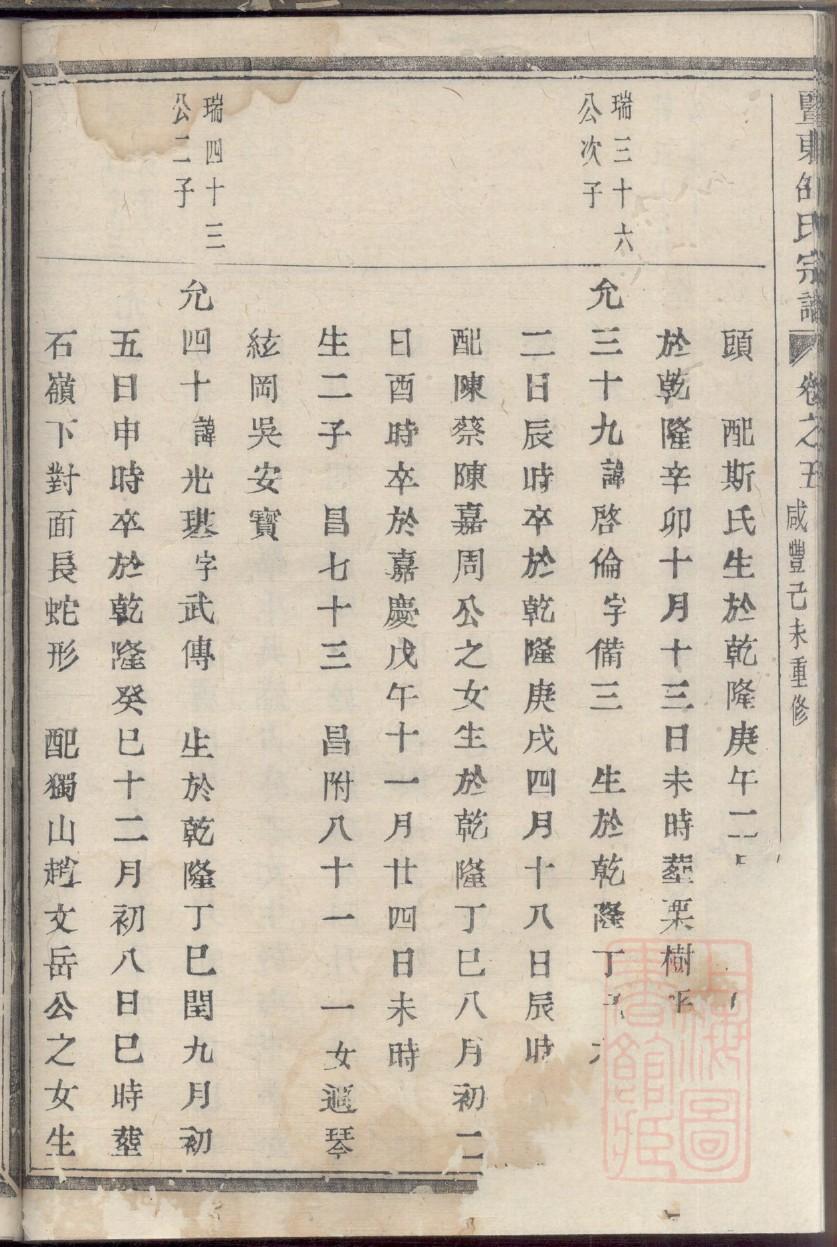 暨東 氏宗譜 卷之五 咸豐己未重修
頭 配斯氏生於乾隆庚午二
於乾隆辛卯十月十三日未時塟栗樹
瑞三十六
公次子
允三十九諱啓倫字備三 生於乾隆丁
二日辰時卒於乾隆庚戌四月十八日辰時
配陳蔡陳嘉周公之女生於乾隆丁巳八月初二
日酉時卒於嘉慶戊午十一月廿四日未時
生二子 昌七十三 昌附八十一 一女適琴
絃岡吳安寳
瑞四十三
公二子
允四十諱光璂字武傳 生於乾隆丁巳閏九月初
五日申時卒於乾隆癸巳十二月初八日巳時塟
石嶺下對面長蛇形 配獨山趙文岳公之女生
上海圖
書館藏